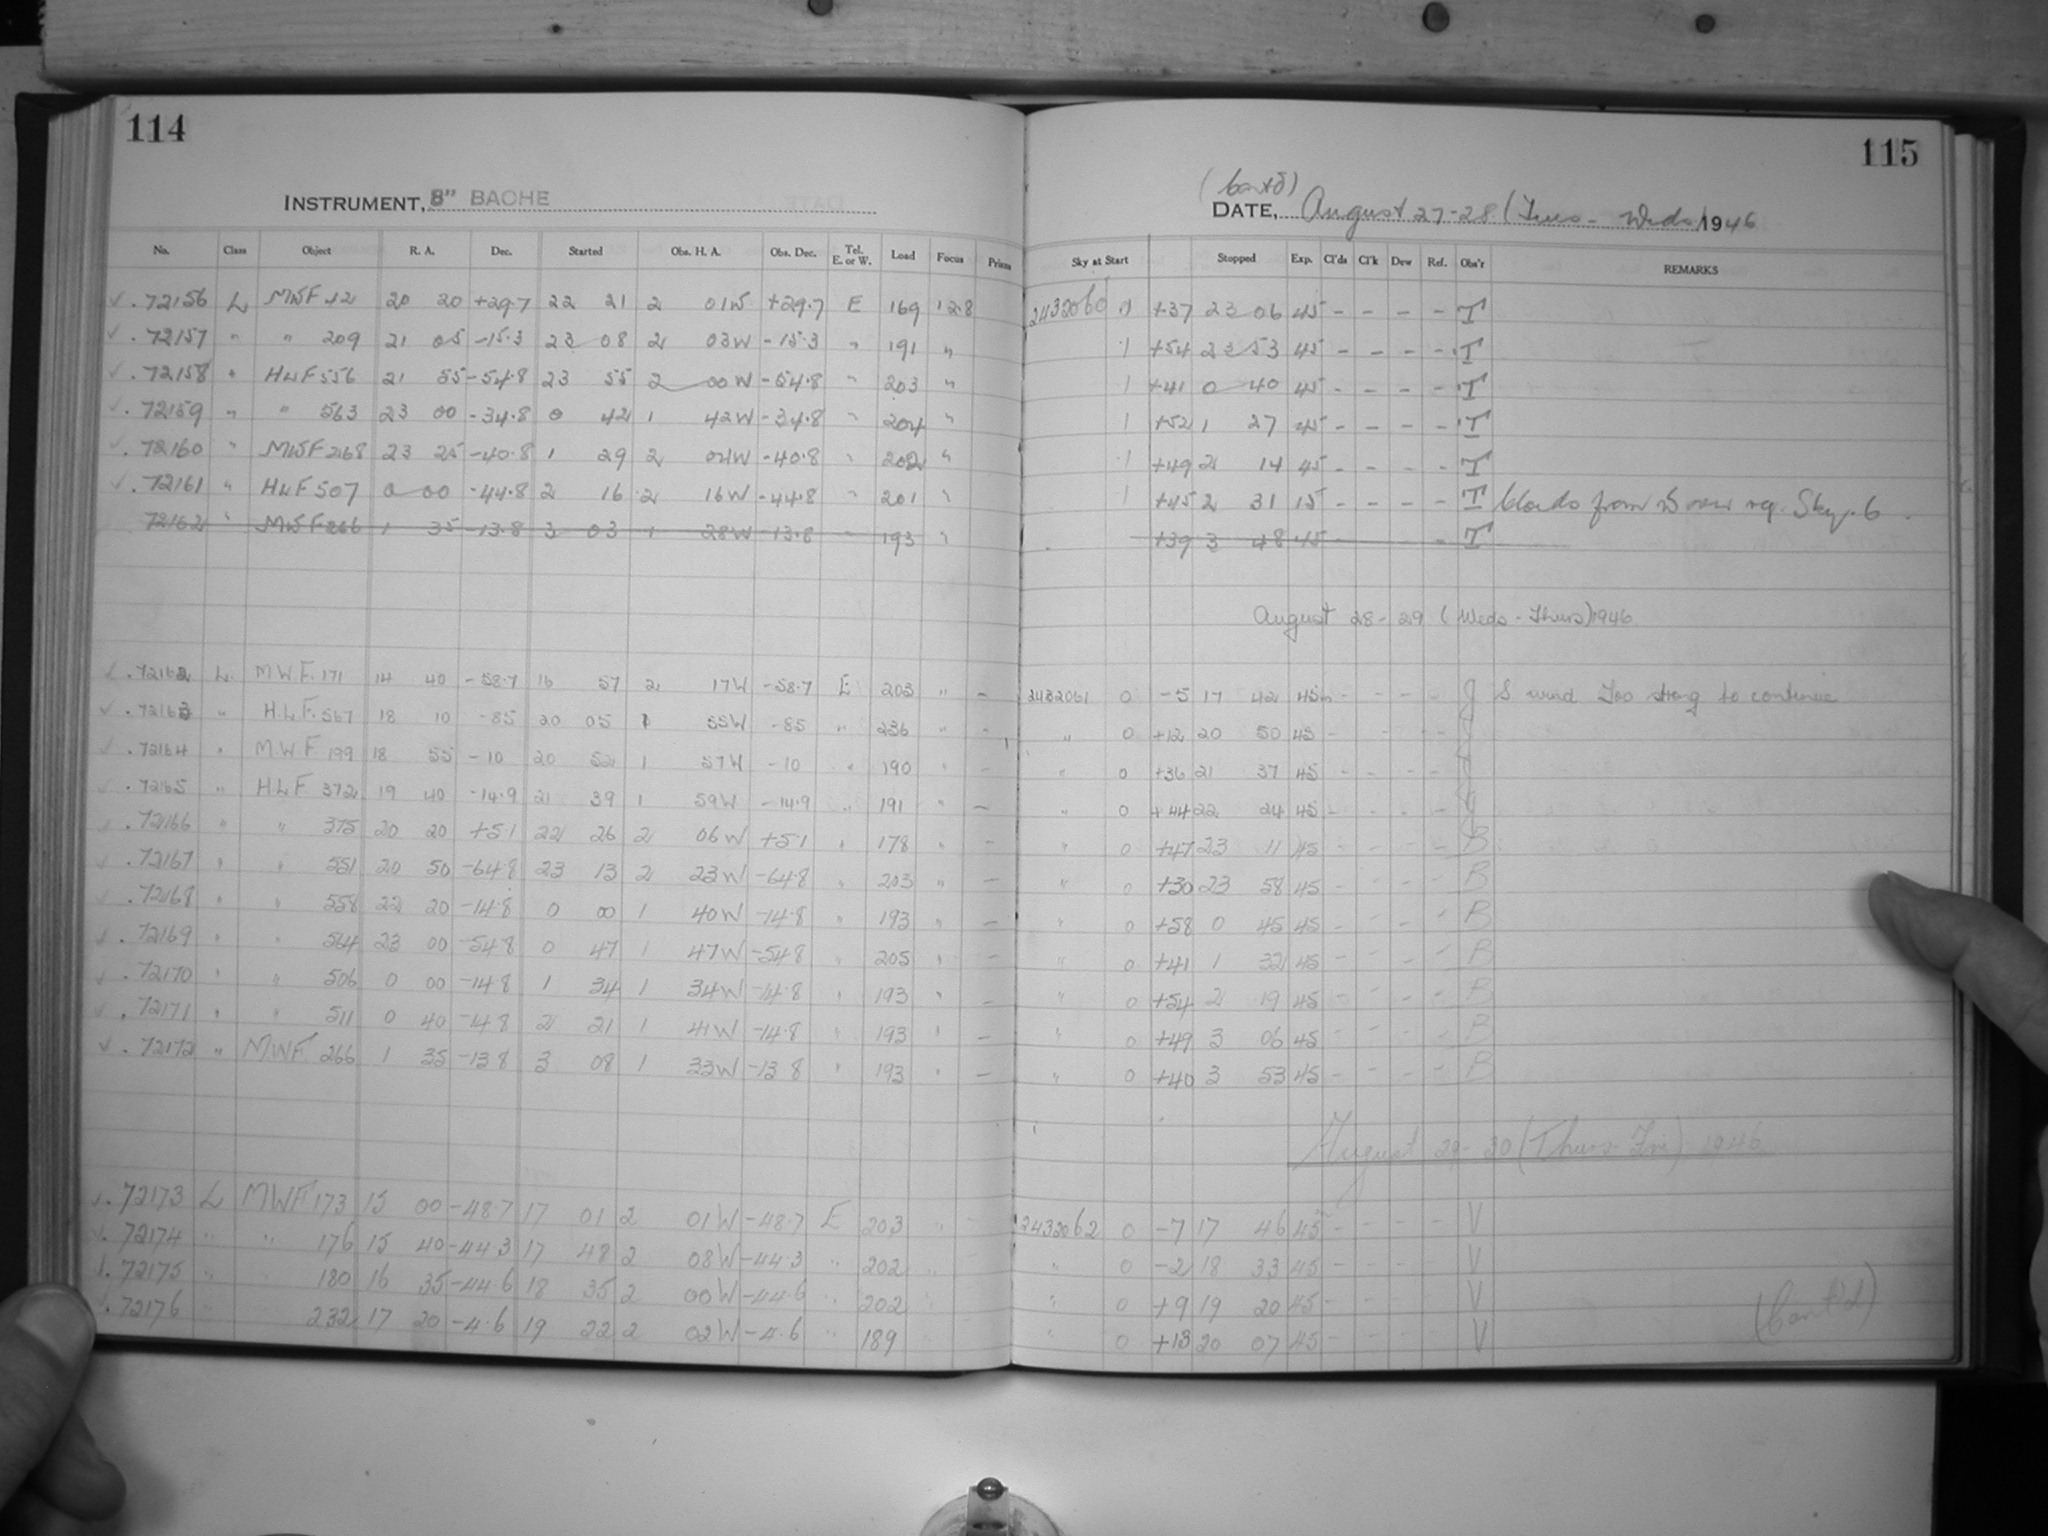 114
INSTRUMENT, 8" BACHE
No. Class Object R. A. Dec. Started Obs. H. A. Obs. Dec. Tel. E. or W. Load Focus Prism
√ . 72156 L MWF 42 20 20 +29.7 22 21 2 01W +29.7 E 169 12.8
√ . 72157 " " 209 21 05 -15.3 23 08 2 03W -15.3 " 191 "
√ . 72158 " HLF 556 21 55 -54.8 23 55 2 00W -54.8 " 203 "
√ . 72159 " " 563 23 00 -34.8 0 42 1 42W -34.8 " 204 "
√ . 72160 " MWF 268 23 25 -40.8 1 29 2 04W -40.8 " 202 "
√ . 72161 " HLF 507 0 00 -44.8 2 16 2 16W -44.8 " 201 "
72162 " MWF 266 1 35 -13.8 3 03 1 28W -13.8 " 193 "
√ . 72162 L. M.W.F. 171 14 40 -58.7 16 57 2 17W -58.7 E 203 " -
√ . 72163 " H.L.F. 567 18 10 -85 20 05 1 55W -85 " 236 " -
√ . 72164 " M.W.F 199 18 55 -10 20 52 1 57W -10 " 190 " -
√ . 72165 " H.L.F 372 19 40 -14.9 21 39 1 59W -14.9 " 191 " -
√ . 72166 " " 375 20 20 +5.1 22 26 2 06W +5.1 " 178 " -
√ . 72167 " " 551 20 50 -64.8 23 13 2 23W -64.8 " 203 " -
√ . 72168 " " 558 22 20 -14.8 0 00 1 40W -14.8 " 193 " -
√ . 72169 " " 564 23 00 -54.8 0 47 1 47W -54.8 " 205 " -
√ . 72170 " " 506 0 00 -14.8 1 34 1 34W -14.8 " 193 " -
√ . 72171 " " 511 0 40 -14.8 2 21 1 41W -14.8 " 193 " -
√ . 72172 " MWF 266 1 35 -13.8 3 08 1 33W -13.8 " 193 " -
√ . 72173 L MWF 173 15 00 -48.7 17 01 2 01W -48.7 E 203 " -
√ . 72174 " " 176 15 40 -44.3 17 48 2 08W -44.3 " 202 "
√ . 72175 " " 180 16 35 -44.6 18 35 2 00W -44.6 " 202 "
√ . 72176 " 232 17 20 -4.6 19 22 2 02W -4.6 " 189
115
(Cont'd)
DATE, August 27-28 (Tues - Weds) 1946
Sky at Start Stopped Exp. Cl'ds Cl'k Dew Ref. Obs'r REMARKS
2432060 1 +37 23 06 45 - - - - T
1 +54 23 53 45 - - - - T
1 +41 0 40 45 - - - - T
1 +52 1 27 45 - - - - T
1 +49 2 14 45 - - - - T
1 +45 2 31 15 - - - - T Clouds from Sky. 6
+39 3 48 45 - - - - T
August 28-29 (Weds - Thurs) 1946
2432061 0 -5 17 42 45m - - - - J S wind Too strong to continue
" 0 +12 20 50 45 - - - - J
" 0 +36 21 37 45 - - - - J
" 0 +44 22 24 45 - - - - J
" 0 +47 23 11 45 - - - - B
" 0 +30 23 58 45 - - - - B
" 0 +58 0 45 45 - - - - B
" 0 +41 1 32 45 - - - - B
" 0 +54 2 19 45 - - - - B
" 0 +49 3 06 45 - - - - B
" 0 +40 3 53 45 - - - - B
August 29-30 (Thurs - Fri) 1946
2432062 0 -7 17 46 45 - - - - V
" 0 -2 18 33 45 - - - - V
" 0 +9 19 20 45 - - - - V
" 0 +13 20 07 45 - - - - V
(Cont'd)